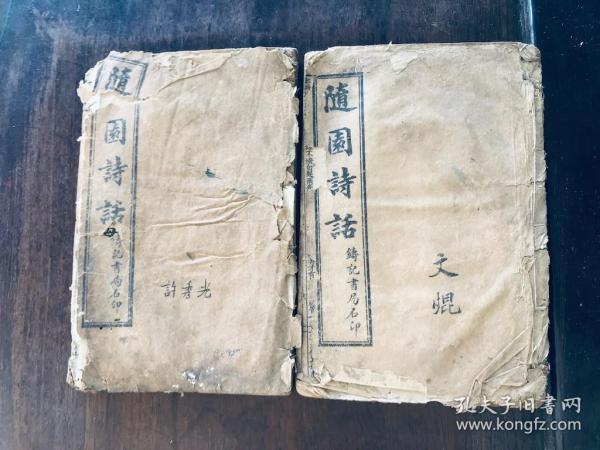 隨園詩話
鑄記書局石印
許秀光
隨園詩話
鑄記書局石印
文焜
孔夫子旧书网
www.kongfz.com